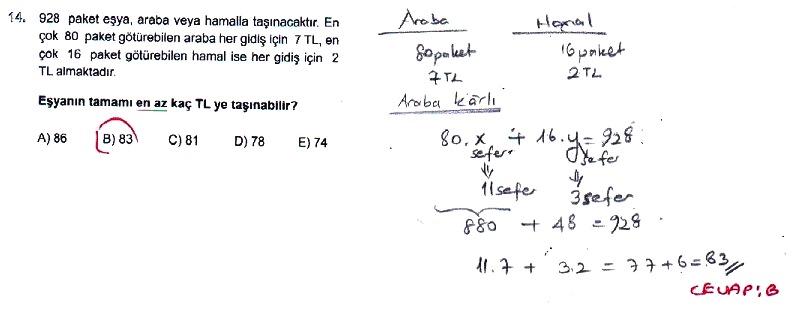 14. 928 paket eşya, araba veya hamalla taşınacaktır. En
çok 80 paket götürebilen araba her gidiş için 7 TL, en
çok 16 paket götürebilen hamal ise her gidiş için 2
TL almaktadır.
Eşyanın tamamı en az kaç TL ye taşınabilir?
A) 86 B) 83 C) 81 D) 78 E) 74
Araba Hamal
80 paket 16 paket
7 TL 2 TL
Araba karlı
80.x + 16.y = 928
sefer sefer
11 sefer 3 sefer
880 + 48 = 928
11.7 + 3.2 = 77+6=83
CEVAP: B